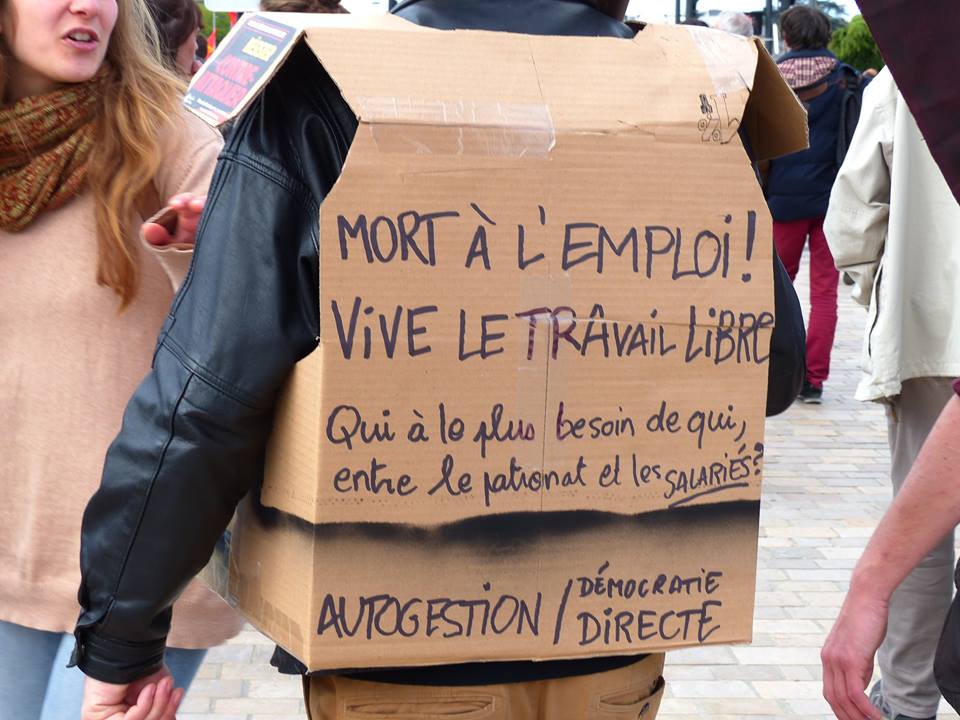 MORT À L'EMPLOI!
ViVE LE TRAVAiL LiBRE
Qui à le plus besoin de qui,
entre le patronat et les SALARIÉS?
AUTOGESTION / DÉMOCRATiE
DiRECTE